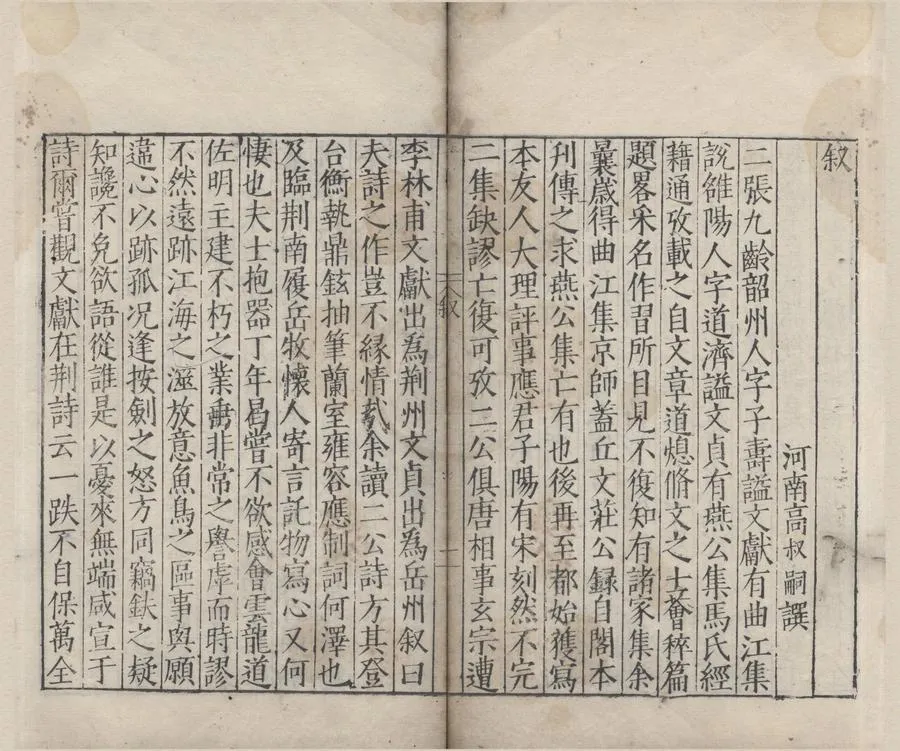 叙
河南高叔嗣譔
二張九齡韶州人字子壽謚文獻有曲江集
說雒陽人字道濟謚文貞有燕公集馬氏經
籍通攷載之自文章道熄脩文之士薈稡篇
題畧采名作習所目見不復知有諸家集余
曩歲得曲江集京師葢丘文莊公録自閣本
刋傳之求燕公集亡有也後再至都始獲寫
本友人大理評事應君子陽有宋刻然不完
二集缺謬亡復可攷二公俱唐相事玄宗遭
叙
一
李林甫文獻出為荆州文貞出為岳州叙曰
夫詩之作豈不縁情哉余讀二公詩方其登
台衡執鼎鉉抽筆蘭室雍容應制詞何澤也
及臨荆南履岳牧懷人寄言託物寫心又何
悽也夫士抱器丁年曷嘗不欲感會雲龍道
佐明主建不朽之業垂非常之譽虖而時謬
不然遠跡江海之滋放意魚鳥之區事與願
違心以跡孤况逢按劍之怒方同竊鈇之疑
知讒不免欲語從誰是以憂來無端咸宣于
詩爾嘗觀文獻在荆詩云一跌不自保萬全